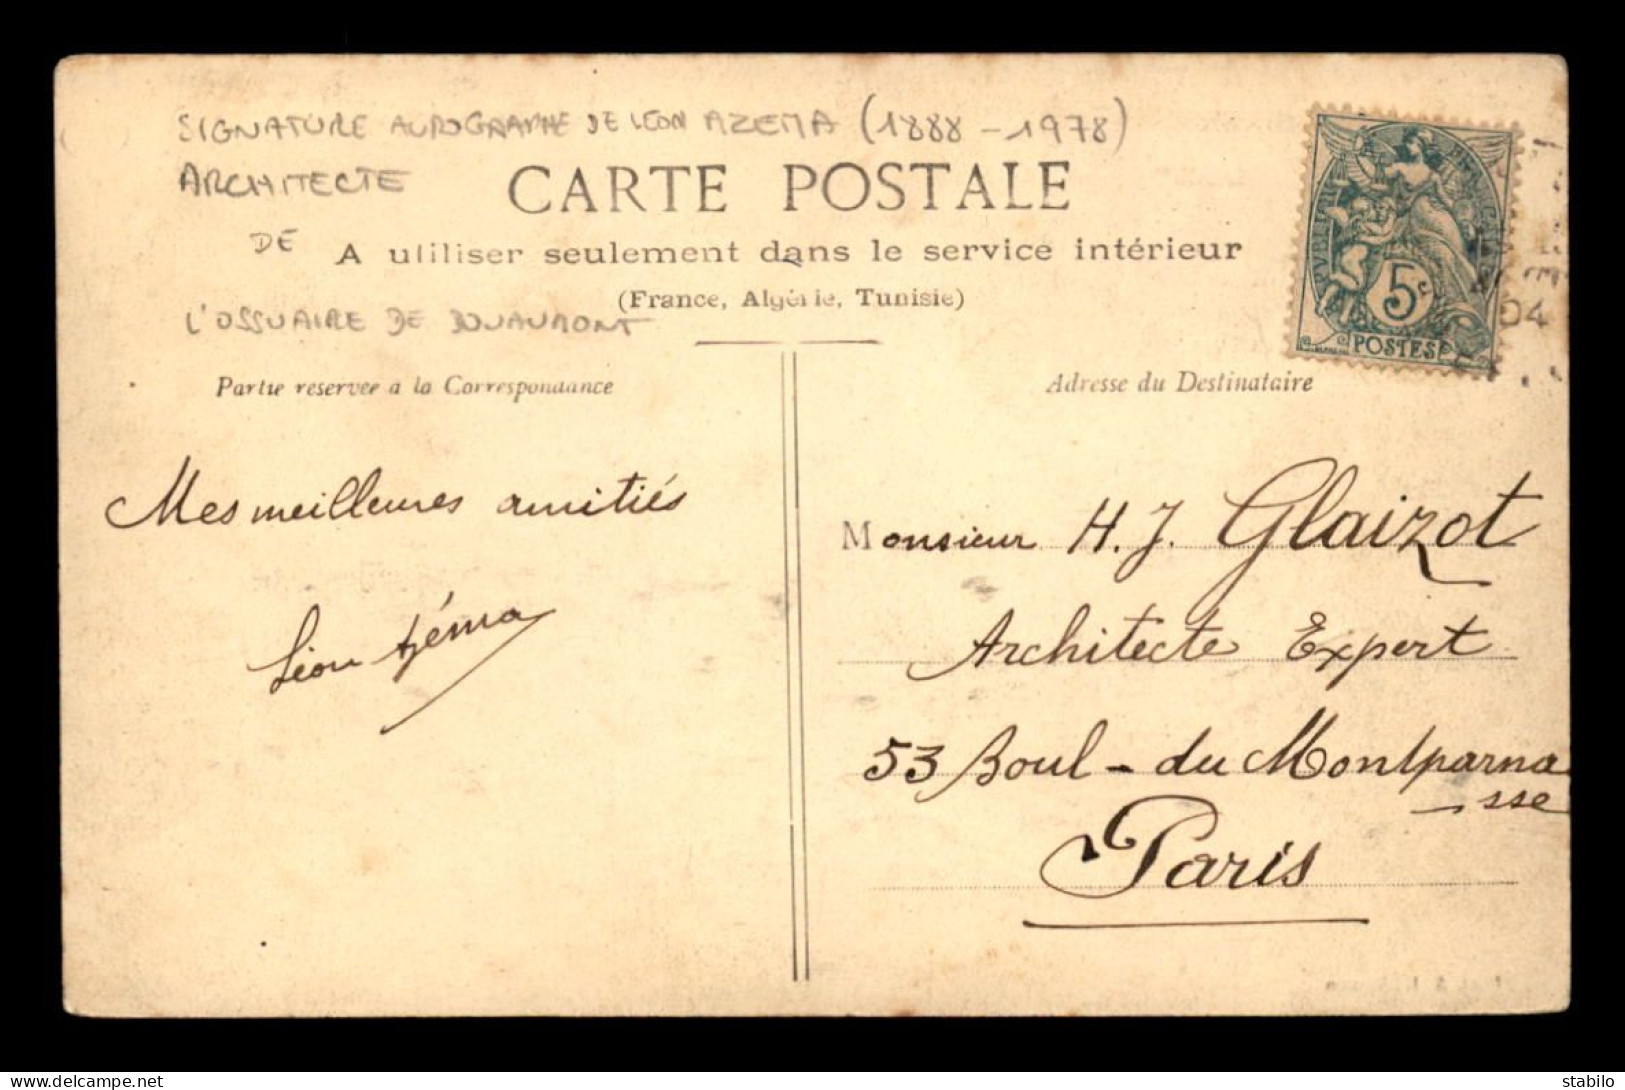 SIGNATURE AUTOGRAPHE DE LEON AZEMA (1888 - 1978)
ARCHITECTE
CARTE POSTALE
DE
A utiliser seulement dans le service intérieur
(France, Algérie, Tunisie)
L'OSSUAIRE DE DOUAUMONT
Partie reservée a la Correspondance
Adresse du Destinataire
REPUBLIQUE FRANCAISE
5c
POSTES
04
Mes meilleures amitiés
Léon Azéma
Monsieur H. J. Glaizot
Architecte Expert
53 Boul - du Montparna
sse
Paris
delcampe.net
stabilo